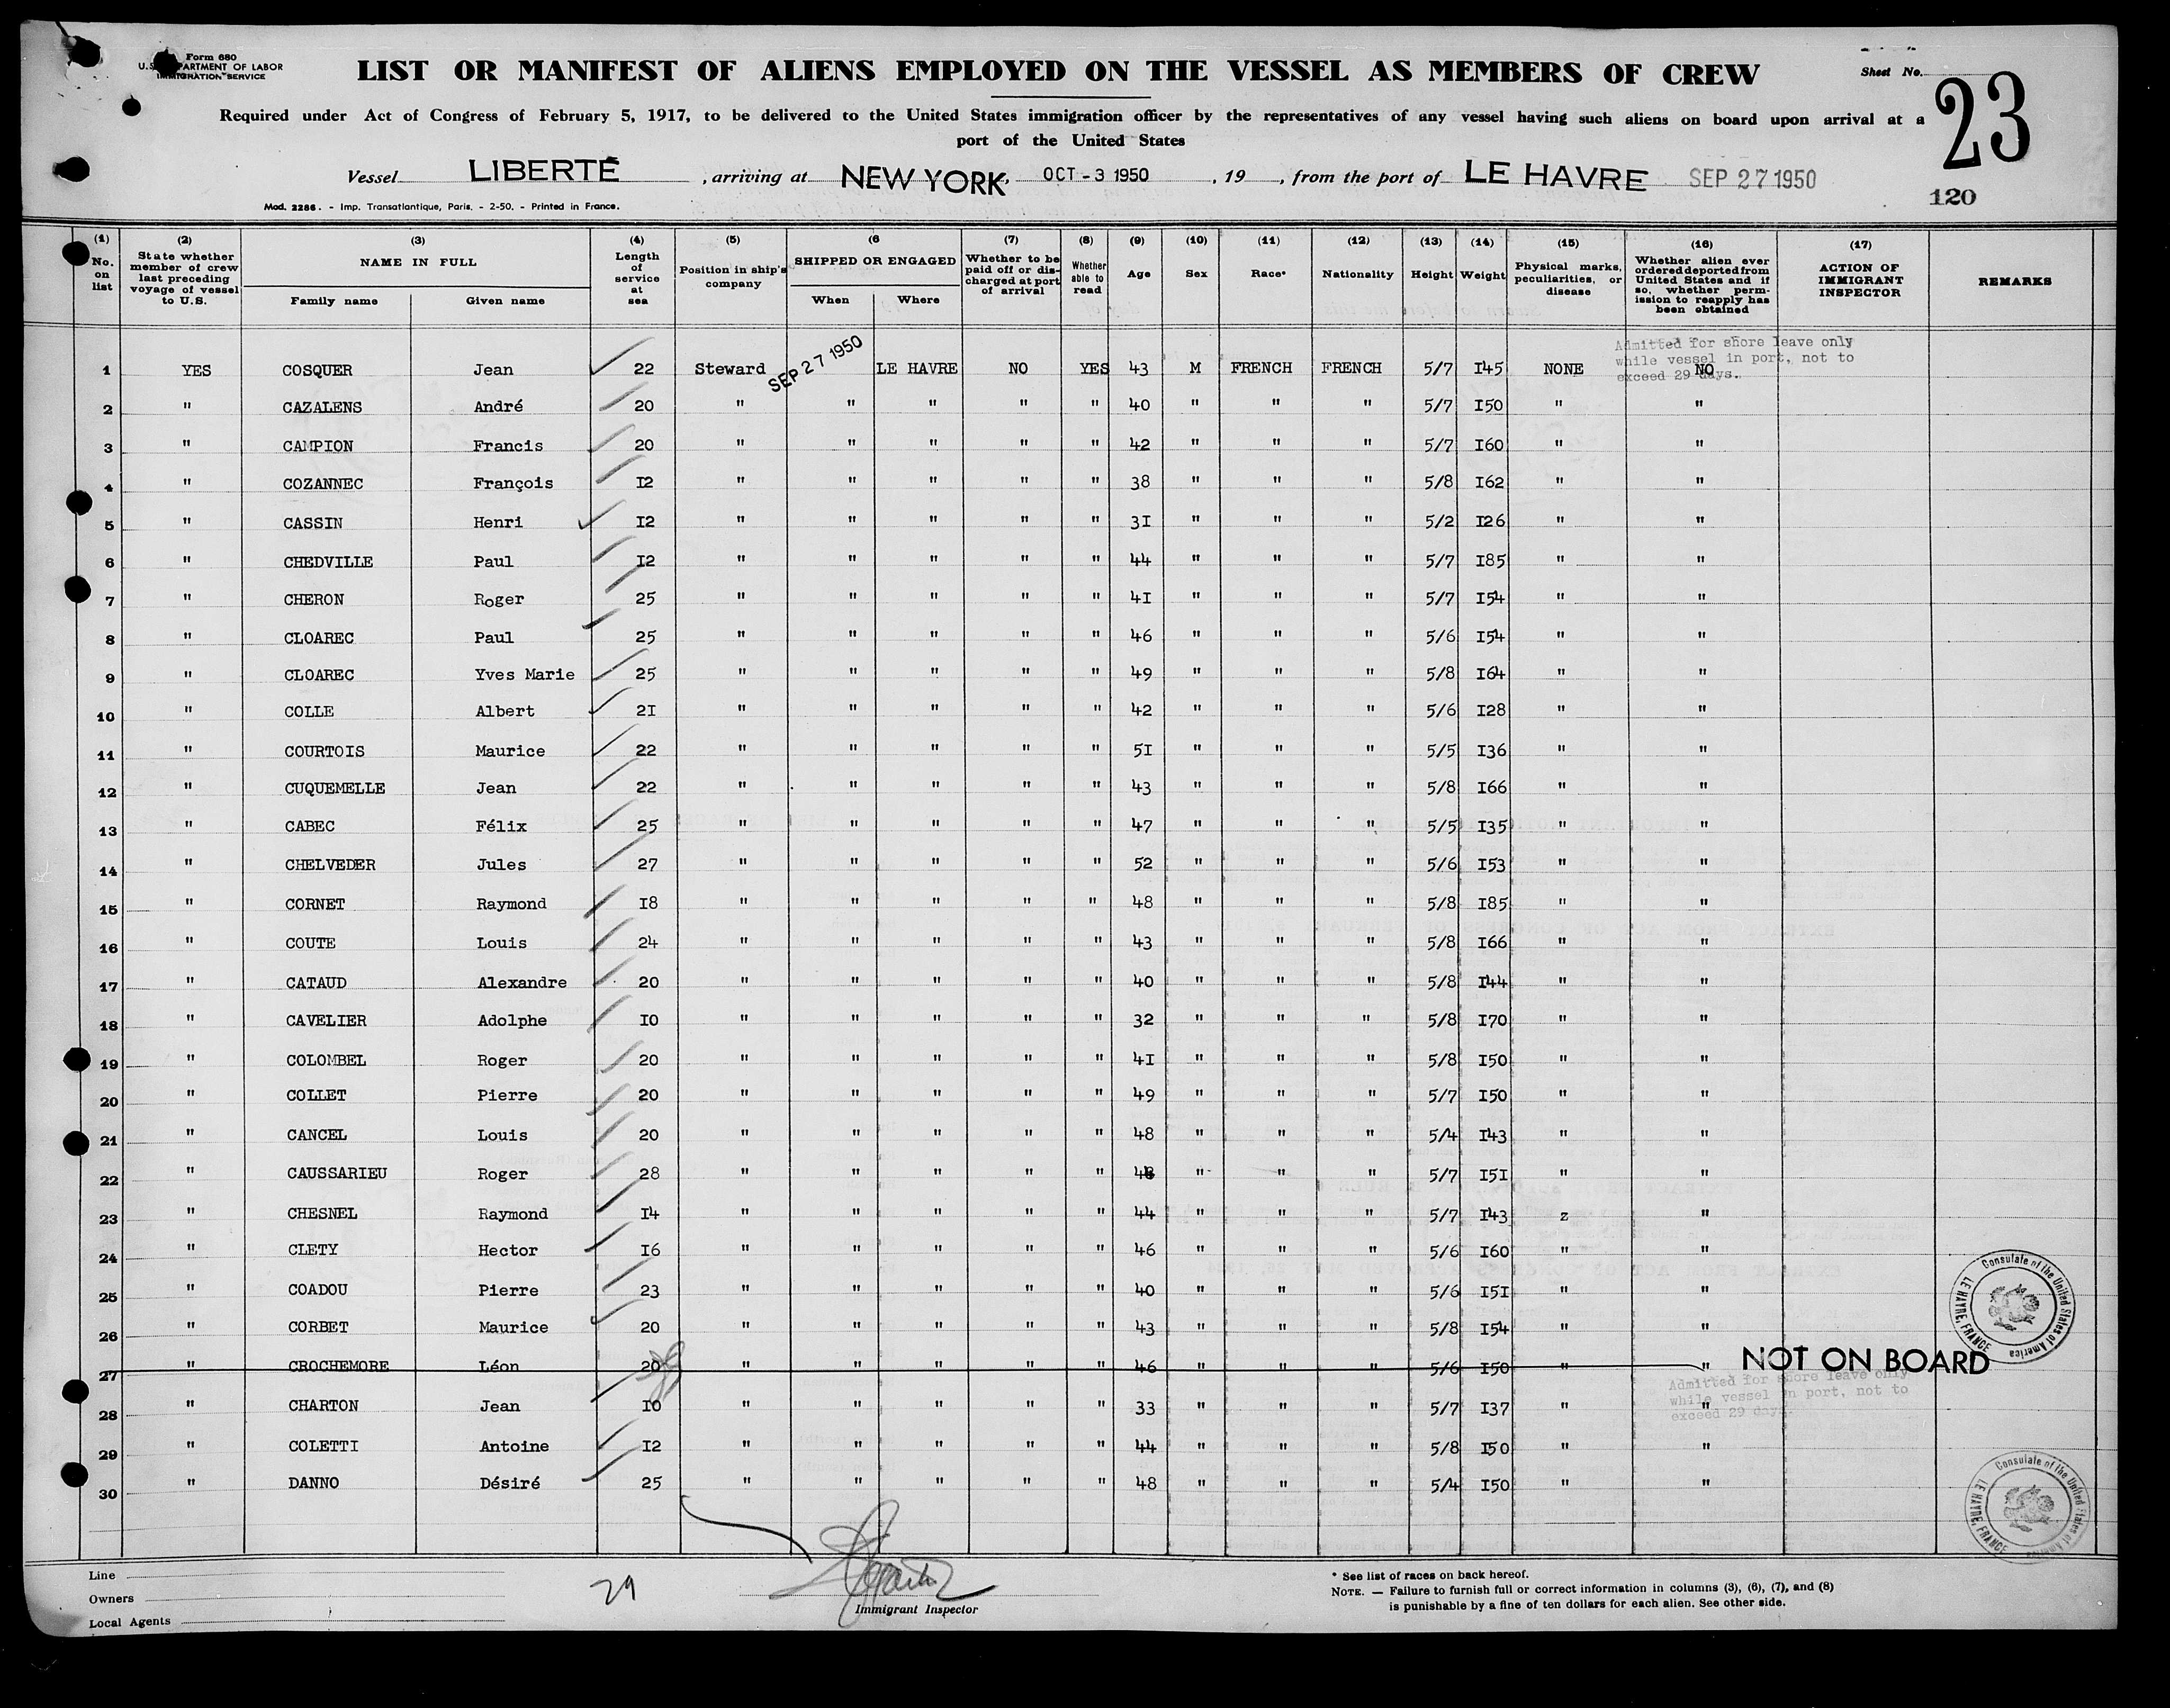 Form 680
U.S. DEPARTMENT OF LABOR
IMMIGRATION SERVICE
LIST OR MANIFEST OF ALIENS EMPLOYED ON THE VESSEL AS MEMBERS OF CREW
Sheet No. 23
Required under Act of Congress of February 5, 1917, to be delivered to the United States immigration officer by the representatives of any vessel having such aliens on board upon arrival at a
port of the United States
Vessel LIBERTÉ , arriving at NEW YORK, OCT - 3 1950 , 19 , from the port of LE HAVRE SEP 27 1950
120
Mod. 2286. - Imp. Transatlantique, Paris. - 2-50. - Printed in France.
(1) No. on list (2) State whether member of crew last preceding voyage of vessel to U.S. (3) NAME IN FULL Family name Given name (4) Length of service at sea (5) Position in ship's company (6 SHIPPED OR ENGAGED When Where (7) Whether to be paid off or discharged at port of arrival (8) Whether able to read (9) Age (10) Sex (11) Race* (12) Nationality (13) Height (14) Weight (15) Physical marks, peculiarities, or disease (16) Whether alien ever ordered deported from United States and if so, whether permission to reapply has been obtained (17) ACTION OF IMMIGRANT INSPECTOR REMARKS
Admitted for shore leave only
while vessel in port, not to
exceed 29 days.
1 YES COSQUER Jean 22 Steward SEP 27 1950 LE HAVRE NO YES 43 M FRENCH FRENCH 5/7 I45 NONE NO
2 " CAZALENS André 20 " " " " " 40 " " " 5/7 I50 " "
3 " CAMPION Francis 20 " " " " " 42 " " " 5/7 I60 " "
4 " COZANNEC François I2 " " " " " 38 " " " 5/8 I62 " "
5 " CASSIN Henri I2 " " " " " 3I " " " 5/2 I26 " "
6 " CHEDVILLE Paul I2 " " " " " 44 " " " 5/7 I85 " "
7 " CHERON Roger 25 " " " " " 4I " " " 5/7 I54 " "
8 " CLOAREC Paul 25 " " " " " 46 " " " 5/6 I54 " "
9 " CLOAREC Yves Marie 25 " " " " " 49 " " " 5/8 I64 " "
10 " COLLE Albert 2I " " " " " 42 " " " 5/6 I28 " "
11 " COURTOIS Maurice 22 " " " " " 5I " " " 5/5 I36 " "
12 " CUQUEMELLE Jean 22 " " " " " 43 " " " 5/8 I66 " "
13 " CABEC Félix 25 " " " " " 47 " " " 5/5 I35 " "
14 " CHELVEDER Jules 27 " " " " " 52 " " " 5/6 I53 " "
15 " CORNET Raymond I8 " " " " " 48 " " " 5/8 I85 " "
16 " COUTE Louis 24 " " " " " 43 " " " 5/8 I66 " "
17 " CATAUD Alexandre 20 " " " " " 40 " " " 5/8 I44 " "
18 " CAVELIER Adolphe I0 " " " " " 32 " " " 5/8 I70 " "
19 " COLOMBEL Roger 20 " " " " " 4I " " " 5/8 I50 " "
20 " COLLET Pierre 20 " " " " " 49 " " " 5/7 I50 " "
21 " CANCEL Louis 20 " " " " " 48 " " " 5/4 I43 " "
22 " CAUSSARIEU Roger 28 " " " " " " " " 5/7 I5I " "
23 " CHESNEL Raymond I4 " " " " " 44 " " " 5/7 I43 z "
24 " CLETY Hector I6 " " " " " 46 " " " 5/6 I60 " "
25 " COADOU Pierre 23 " " " " " 40 " " " 5/6 I5I " "
26 " CORBET Maurice 20 " " " " " 43 " " " 5/8 I54 " "
27 " CROCHEMORE Léon 20 " " " " " 46 " " " 5/6 I50 " " NOT ON BOARD
Admitted for shore leave only
while vessel in port, not to
exceed 29 days.
28 " CHARTON Jean I0 " " " " " 33 " " " 5/7 I37 " "
29 " COLETTI Antoine I2 " " " " " 44 " " " 5/8 I50 " "
30 " DANNO Désiré 25 " " " " " 48 " " " 5/4 I50 " "
Consulate of the United States of America
LE HAVRE, FRANCE
Consulate of the United States of America
LE HAVRE, FRANCE
Line
Owners
Local Agents
29
Immigrant Inspector
* See list of races on back hereof.
NOTE. — Failure to furnish full or correct information in columns (3), (6), (7), and (8)
is punishable by a fine of ten dollars for each alien. See other side.